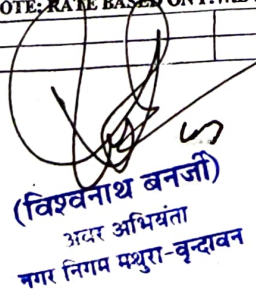 NOTE: RATE BASED ON P.W.D
(विश्वनाथ बनर्जी)
अवर अभियंता
नगर निगम मथुरा-वृन्दावन